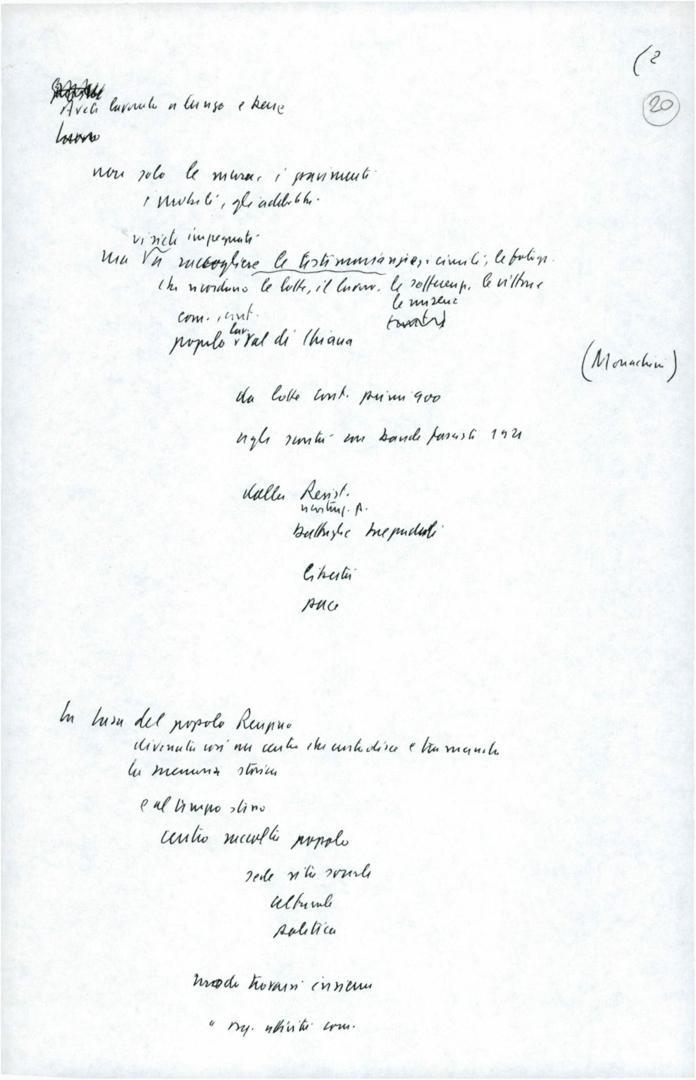 (2
20
Avete lavorato a lungo e bene
lavoro
non solo le mura, i pavimenti
i mobili, gli addobbi.
vi siete impegnati
ma raccogliere le testimonianze, i cimeli, le fotogr.
che ricordano le lotte, il lavoro. le sofferenze, le vittorie
le miserie
com. cont.
popolo lav. Val di Chiana
(Monachini)
da lotte cont. primi 900
agli scontri con bande fasciste 1921
dalla Resist.
battaglie
libertà
pace
La Casa del popolo
divenuta così un centro che custodisce e tramanda
la memoria storica
e al tempo stesso
centro raccolta popolo
sede vita sociale
culturale
politica
modo trovarsi insieme
" org. attività com.